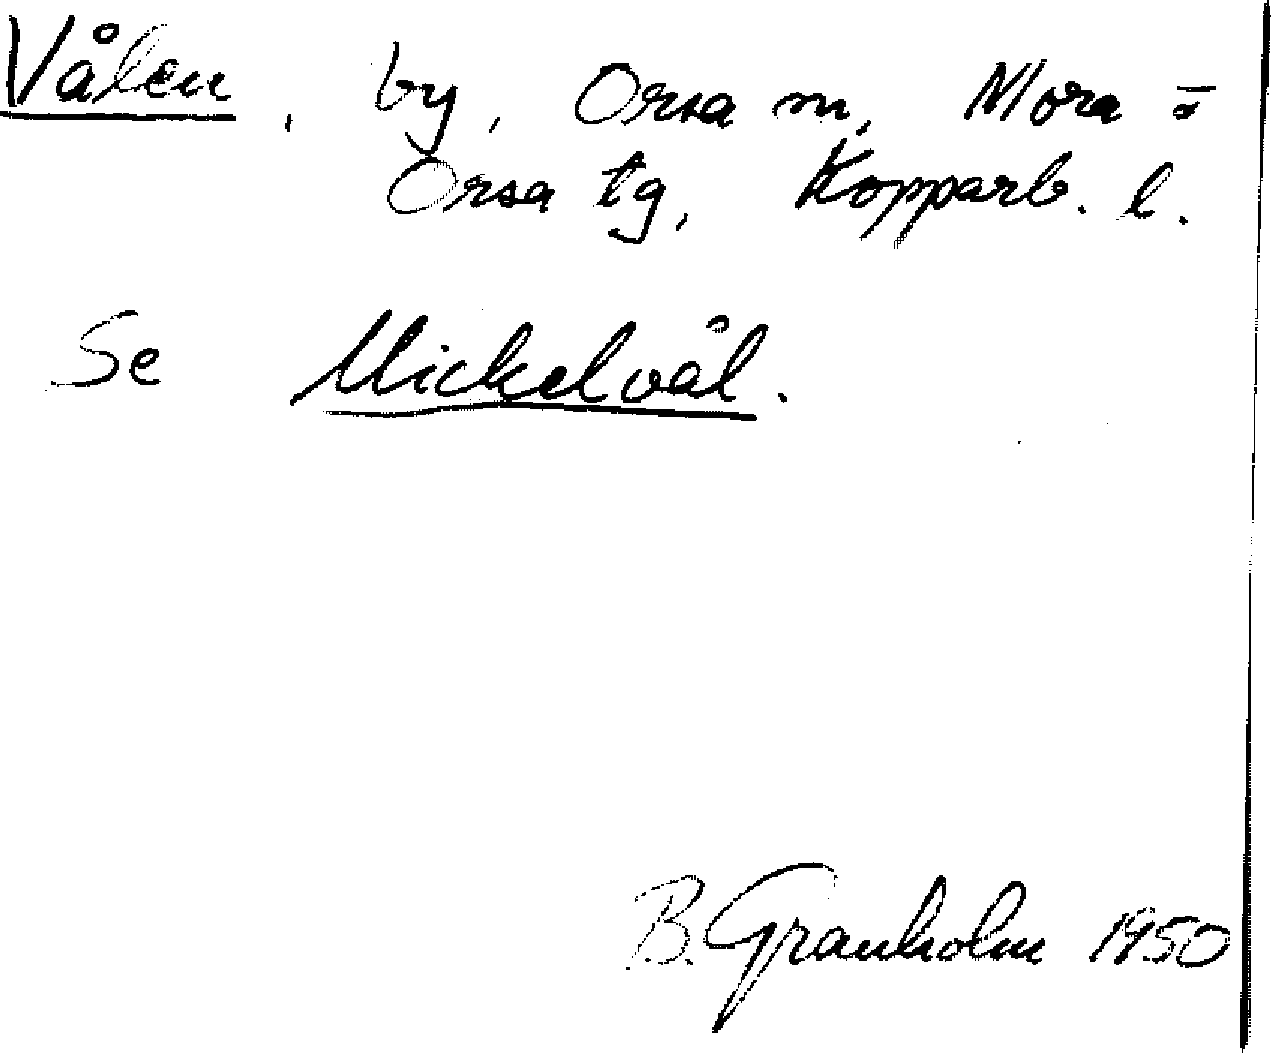 Vålen, by, Orsa m, Mora o
Orsa tg, Kopparb. l.
Se Mickelvål.
B. Granholm 1950